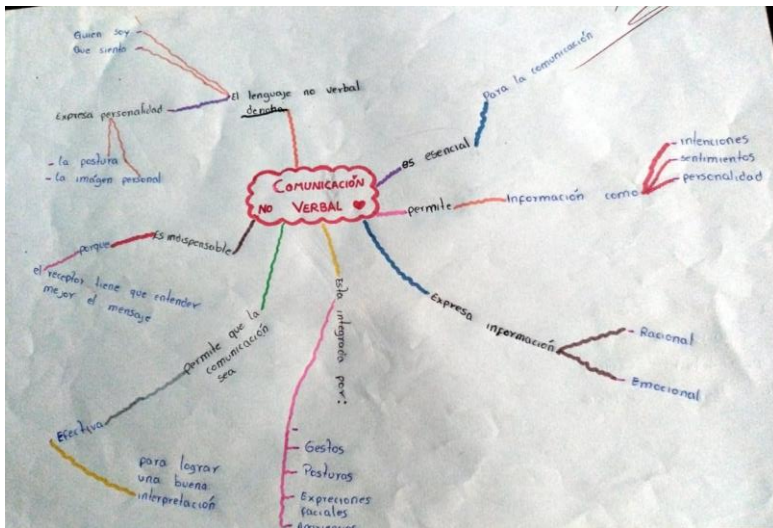 Quien soy
Que siento
El lenguaje no verbal
denota
Expresa personalidad
- la postura
- la imágen personal
COMUNICACIÓN
NO VERBAL
es esencial
Para la comunicación
permite
Información como
- intenciones
- sentimientos
- personalidad
Expresa información
- Racional
- Emocional
Esta integrada por:
- Gestos
- Posturas
- Expreciones
faciales
permite que la
comunicación
sea
Efectiva
para lograr
una buena
interpretación
Es indispensable
porque
el receptor tiene que entender
mejor el mensaje